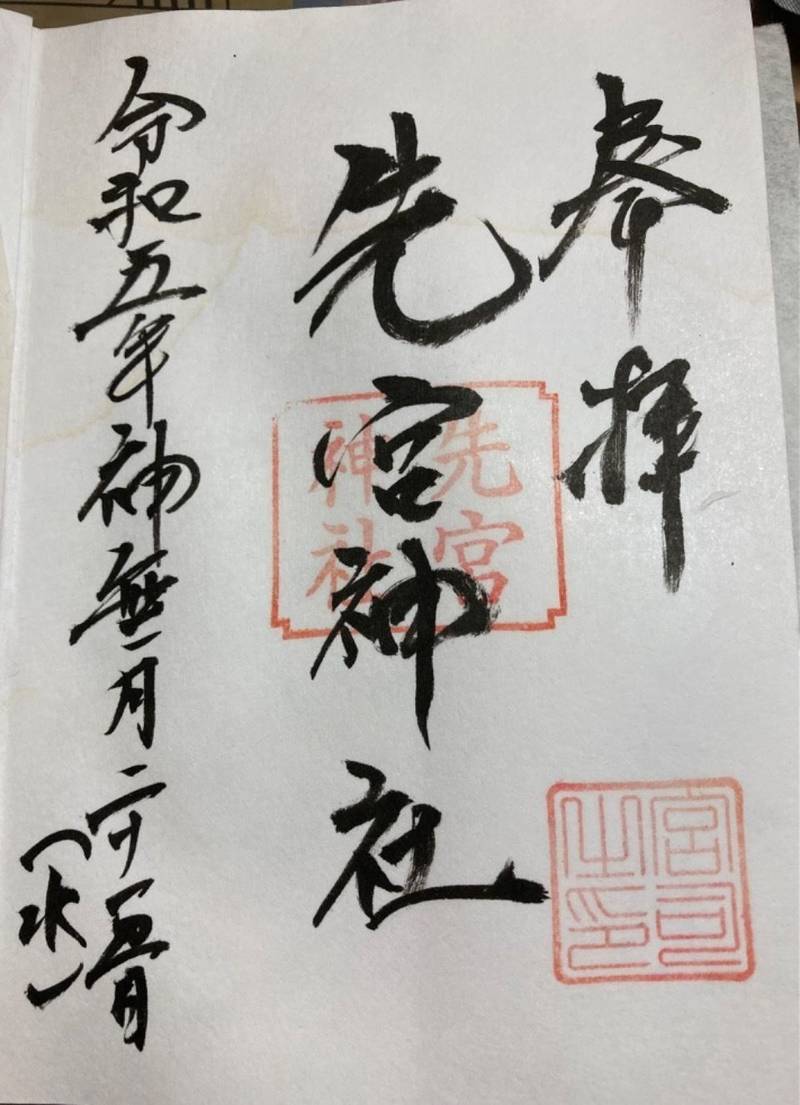 奉拝
先宮神社
先宮
神社
宮司
之印
令和五年神無月二十五日
（水）